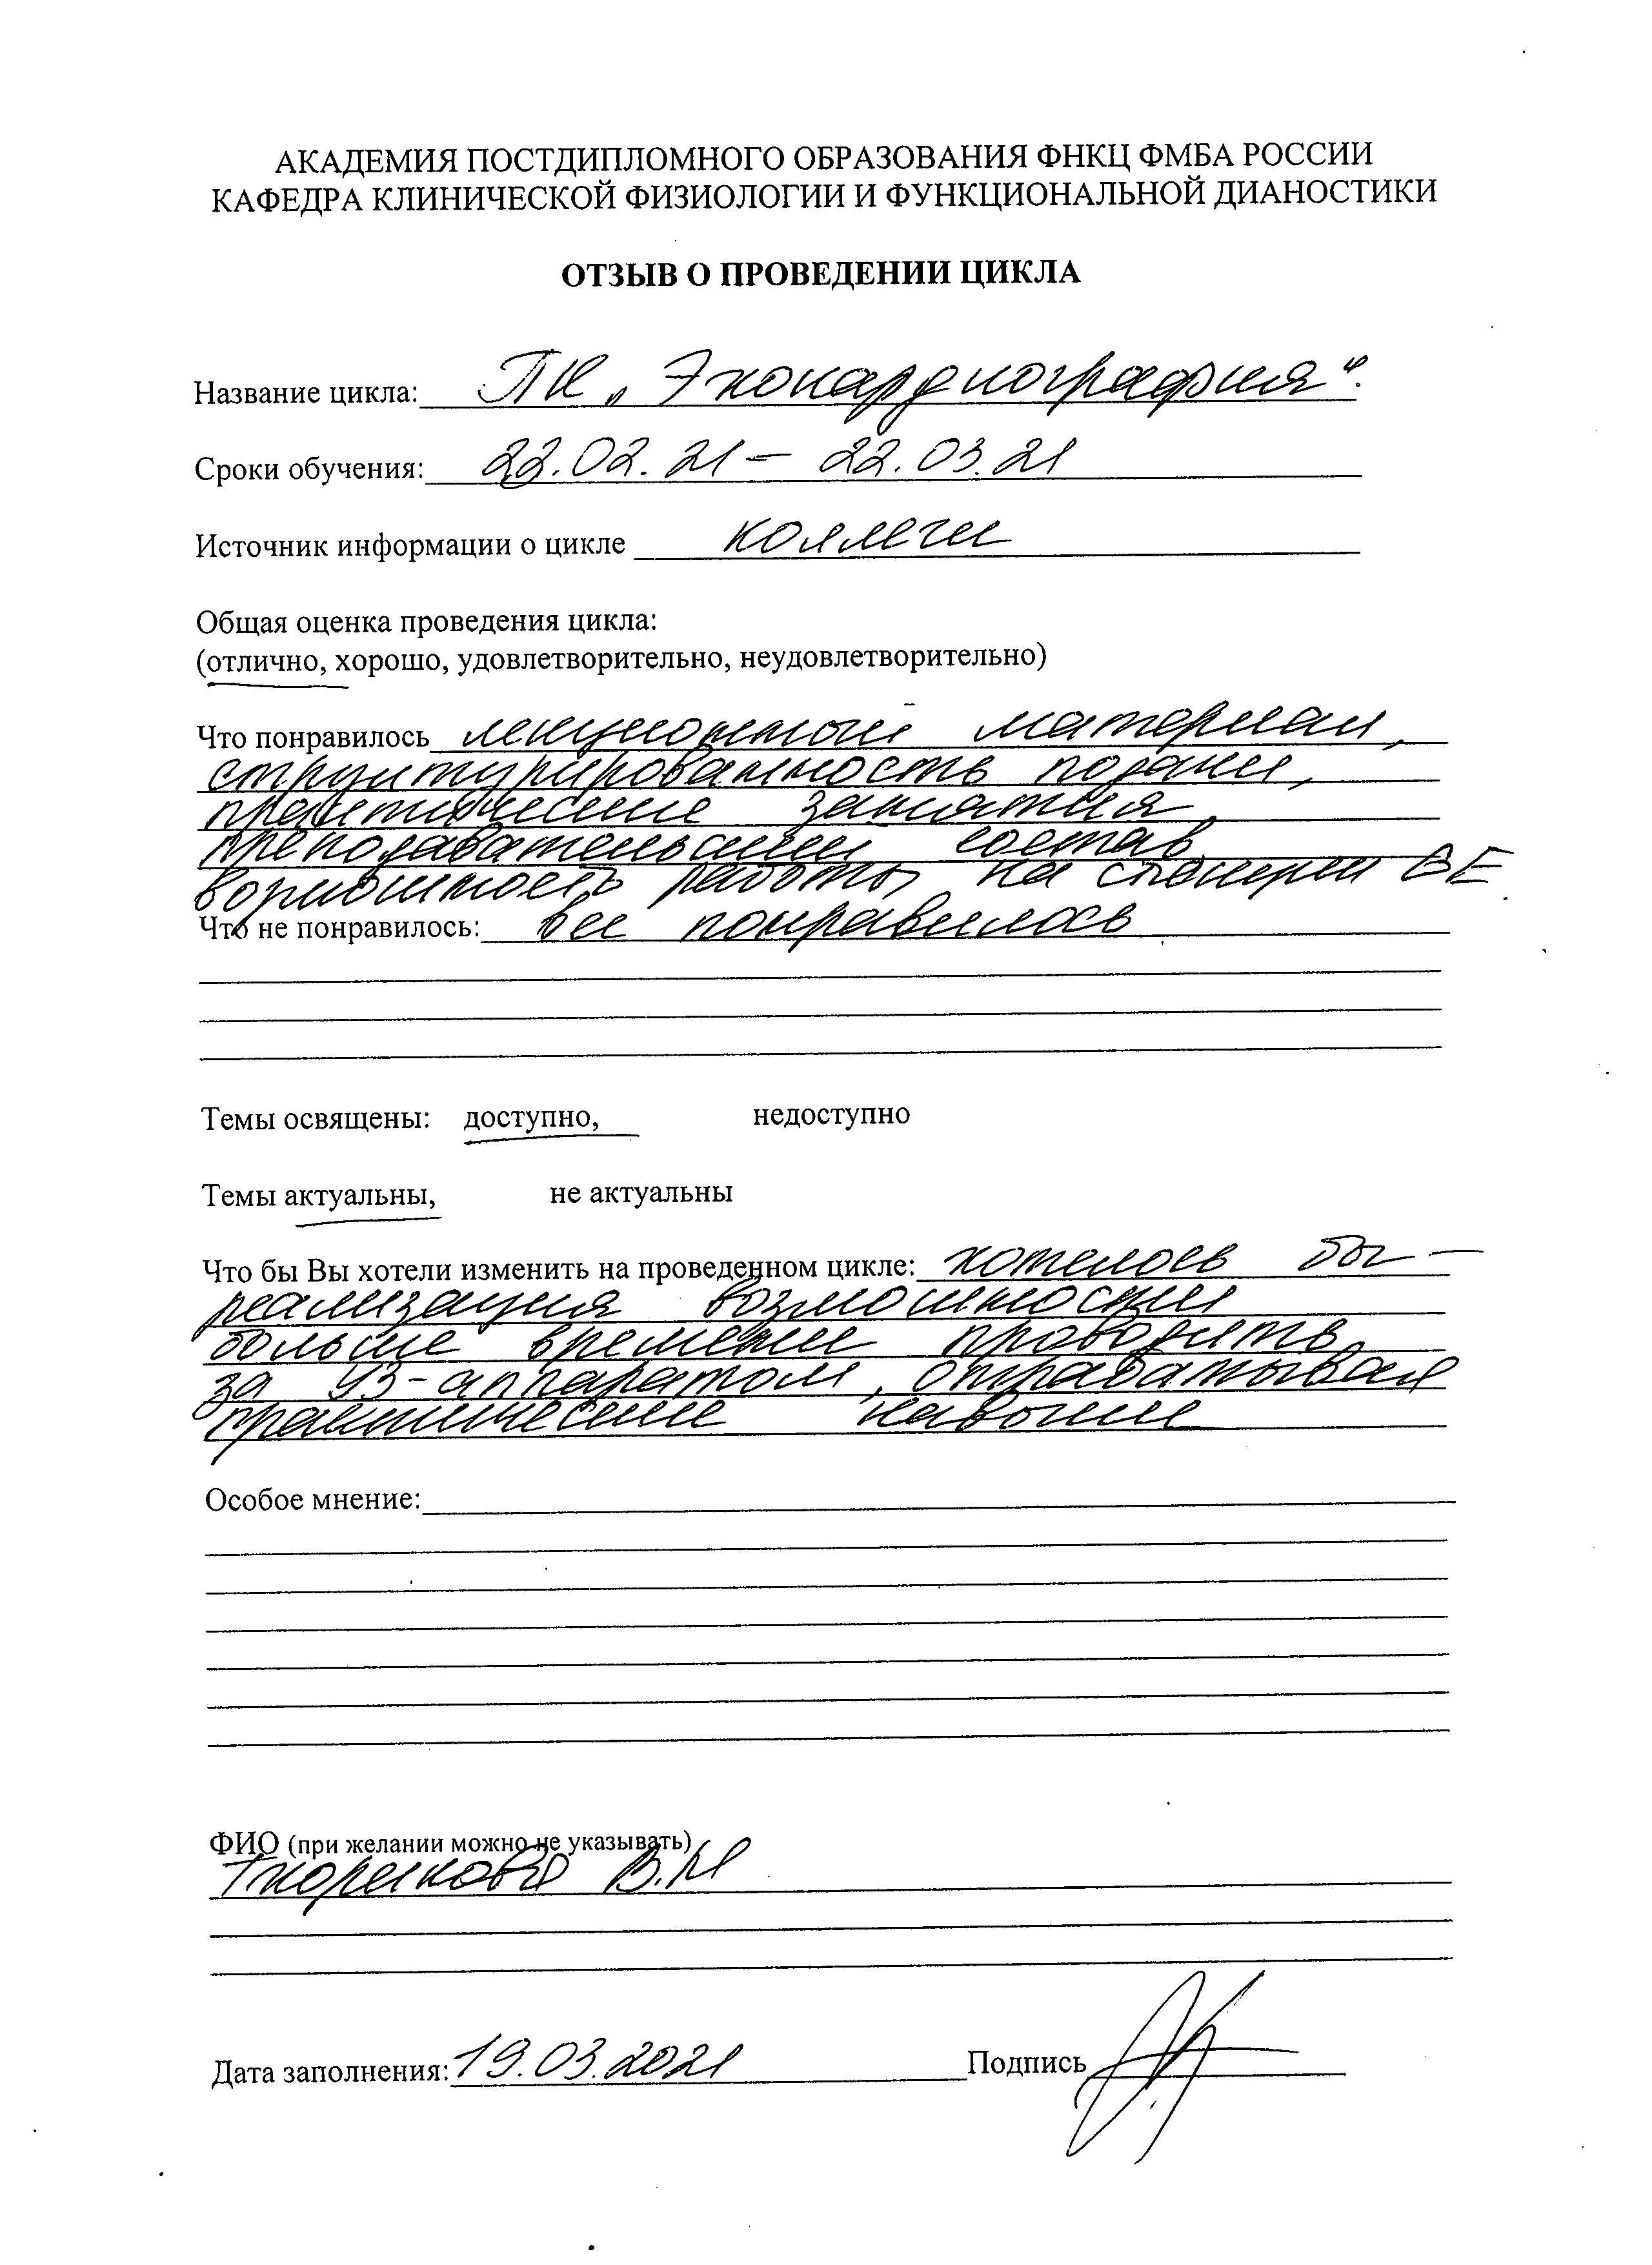 АКАДЕМИЯ ПОСТДИПЛОМНОГО ОБРАЗОВАНИЯ ФНКЦ ФМБА РОССИИ
КАФЕДРА КЛИНИЧЕСКОЙ ФИЗИОЛОГИИ И ФУНКЦИОНАЛЬНОЙ ДИАНОСТИКИ
ОТЗЫВ О ПРОВЕДЕНИИ ЦИКЛА
Название цикла: ПК „Эхокардиография“.
Сроки обучения: 22.02.21 – 22.03.21
Источник информации о цикле коллеги
Общая оценка проведения цикла:
(отлично, хорошо, удовлетворительно, неудовлетворительно)
Что понравилось лекционный материал,
структурированность подачи,
практические занятия,
преподавательский состав,
возможность работы на сканерах
Что не понравилось: все понравилось
Темы освящены: доступно, недоступно
Темы актуальны, не актуальны
Что бы Вы хотели изменить на проведенном цикле: хотелось бы –
реализация возможности
больше времени проводить
за УЗ-аппаратом, отрабатывая
практические навыки
Особое мнение:
ФИО (при желании можно не указывать)
В.М
Дата заполнения: 19.03.2021 Подпись